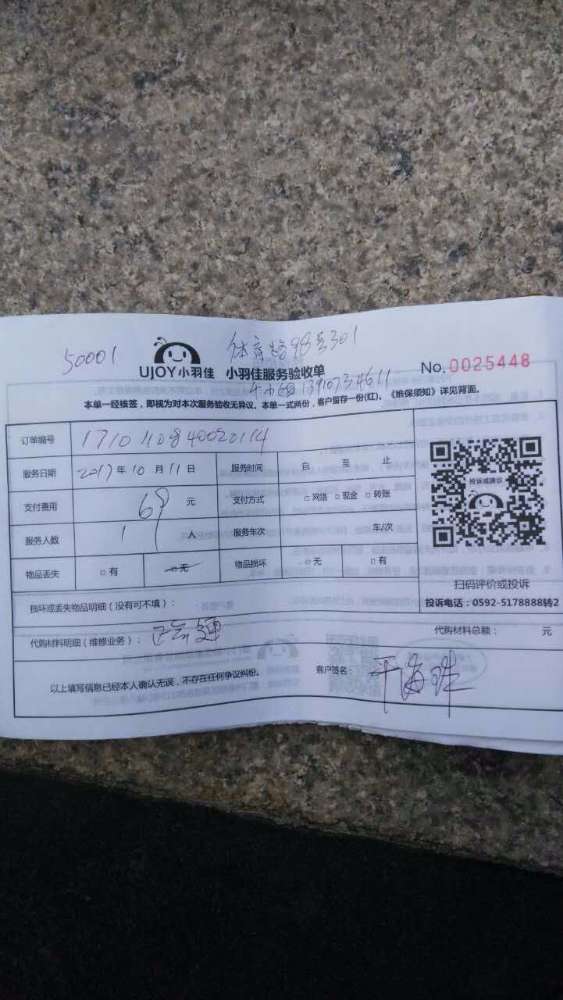 50001
体育路98号301
UJOY小羽佳 小羽佳服务验收单
No.0025448
13910734611
本单一经核签，即视为对本次服务验收无异议。本单一式两份，客户留存一份(红)。《维保须知》详见背面。
订单编号 1710110840020114
服务日期 2017年10月11日 服务时间 自 至 止
支付费用 69 元 支付方式 □网络 □现金 □转账
服务人数 1 人 服务车次 车/次
物品丢失 □有 □无 物品损坏 □无 □有
投诉或建议
扫码评价或投诉
投诉电话：0592-5178888转2
损坏或丢失物品明细（没有可不填）：
代购材料明细（维修业务）： 代购材料总额： 元
以上填写信息已经本人确认无误，不存在任何争议纠纷。 客户签名：